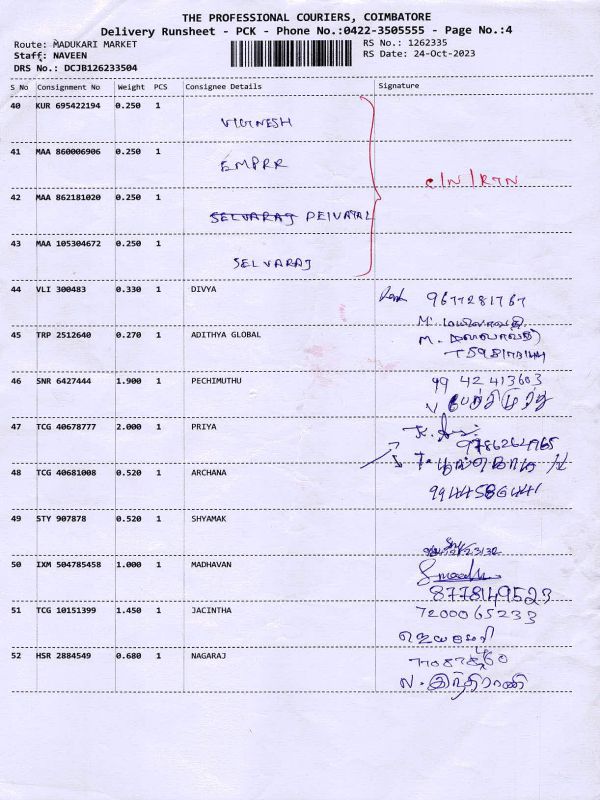 THE PROFESSIONAL COURIERS, COIMBATORE
Delivery Runsheet - PCK - Phone No.:0422-3505555 - Page No.:4
Route: MADUKARI MARKET
RS No.: 1262335
Staff: NAVEEN
RS Date: 24-Oct-2023
DRS No.: DCJB126233504
S No Consignment No Weight PCS Consignee Details Signature
40 KUR 695422194 0.250 1
VIGNESH
41 MAA 860006906 0.250 1
EMPRR
C/N/RTN
42 MAA 862181020 0.250 1
SELVARAJ
43 MAA 105304672 0.250 1
SELVARAJ
44 VLI 300483 0.330 1 DIVYA
9677281767
45 TRP 2512640 0.270 1 ADITHYA GLOBAL
46 SNR 6427444 1.900 1 PECHIMUTHU
99 42 413603
பேச்சிமுத்து
47 TCG 40678777 2.000 1 PRIYA
9786264765
48 TCG 40681008 0.520 1 ARCHANA
9944586441
49 STY 907878 0.520 1 SHYAMAK
50 IXM 504785458 1.000 1 MADHAVAN
8778149523
51 TCG 10151399 1.450 1 JACINTHA
7200065233
52 HSR 2884549 0.680 1 NAGARAJ
ந. இந்திராணி